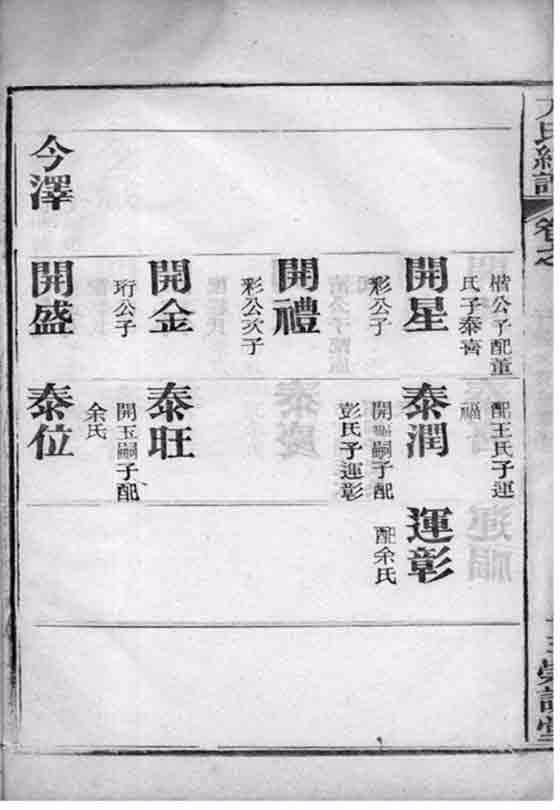 氏統譜
卷之
今澤
楷公子配董
氏子泰齊
開星
彩公子
開禮
彩公次子
開金
珩公子
開盛
配王氏子運
福
泰潤
開嗣子配
彭氏子運彰
泰旺
開玉嗣子配
余氏
泰位
運彰
配余氏